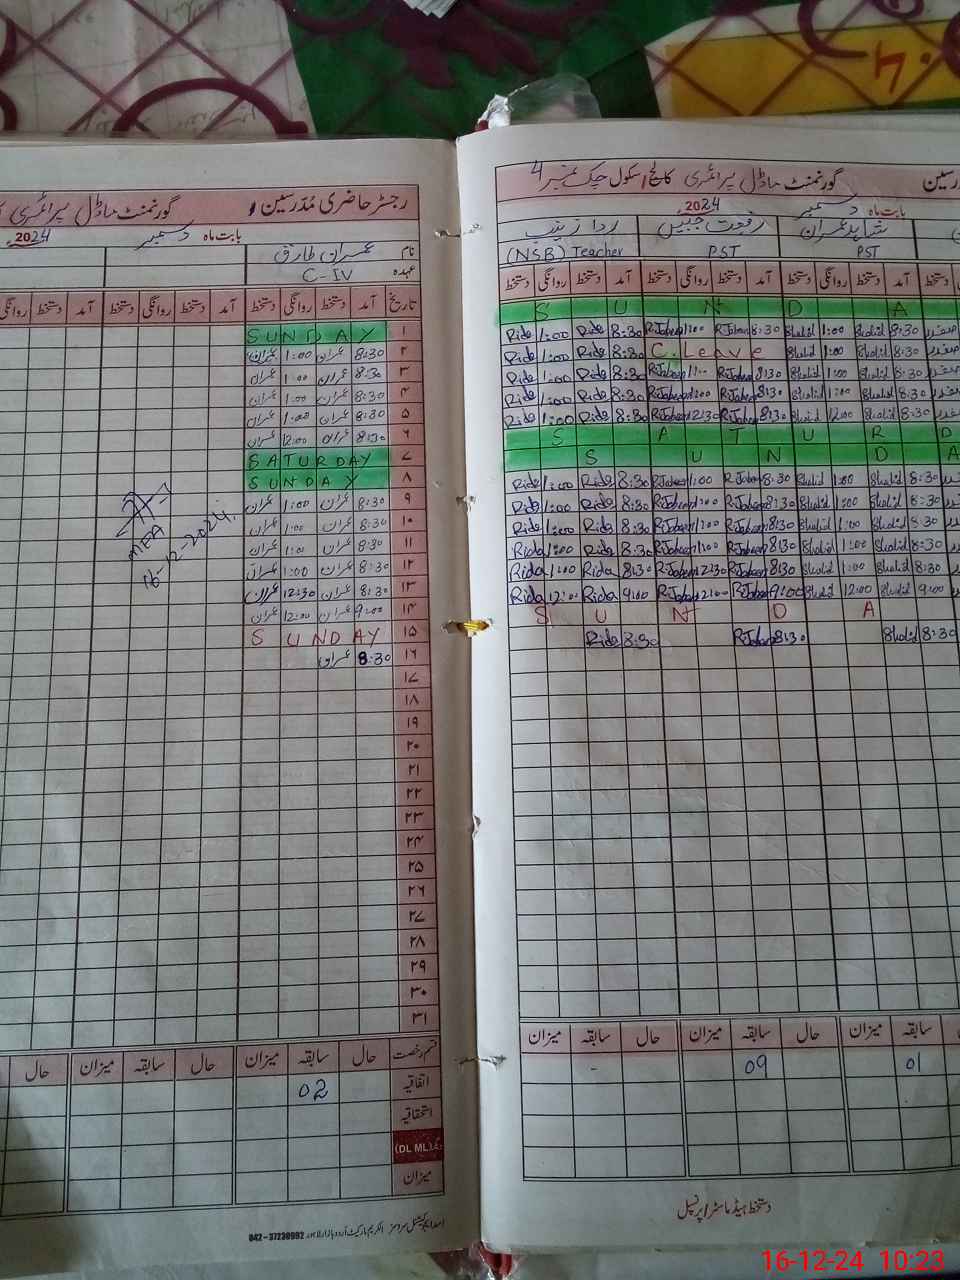 رجسٹر حاضری مدرسین
گورنمنٹ ماڈل پرائمری
بابت ماہ دسمبر 2024ء
نام عمران طارق
عہدہ C-IV
تاریخ آمد دستخط روانگی دستخط آمد دستخط روانگی دستخط آمد دستخط روانگی
۱ SUNDAY
۲ 8:30 عمران 1:00 عمران
۳ 8:30 عمران 1:00 عمران
۴ 8:30 عمران 1:00 عمران
۵ 8:30 عمران 1:00 عمران
۶ 8:30 عمران 12:00 عمران
۷ SATURDAY
۸ SUNDAY
۹ 8:30 عمران 1:00 عمران
۱۰ 8:30 عمران 1:00 عمران
۱۱ 8:30 عمران 1:00 عمران
۱۲ 8:30 عمران 1:00 عمران
۱۳ 8:30 عمران 12:30 عمران
۱۴ 9:00 عمران 12:00 عمران
۱۵ SUNDAY
۱۶ 8:30 عمران
۱۷
۱۸
۱۹
۲۰
۲۱
۲۲
۲۳
۲۴
۲۵
۲۶
۲۷
۲۸
۲۹
۳۰
۳۱
MEA
16-12-2024
قسم رخصت حال سابقہ میزان حال سابقہ میزان حال
اتفاقیہ 02
استحقاقیہ
(DL ML)
میزان
042-37230992
گورنمنٹ ماڈل پرائمری کالج اسکول چک نمبر 4
بابت ماہ دسمبر 2024ء
شاہد عمران رفعت جبیں ردا زینب
PST PST (NSB) Teacher
دستخط روانگی دستخط آمد دستخط روانگی دستخط آمد دستخط روانگی دستخط آمد دستخط
S U N D A
Rida 1:00 Rida 8:30 RJabeen 1:00 RJabeen 8:30 Shahid 1:00 Shahid 8:30
Rida 1:00 Rida 8:30 C. Leave Shahid 1:00 Shahid 8:30
Rida 1:00 Rida 8:30 RJabeen 1:00 RJabeen 8:30 Shahid 1:00 Shahid 8:30
Rida 1:00 Rida 8:30 RJabeen 1:00 RJabeen 8:30 Shahid 1:00 Shahid 8:30
Rida 1:00 Rida 8:30 RJabeen 12:30 RJabeen 8:30 Shahid 12:00 Shahid 8:30
S A T U R D
S U N D A
Rida 1:00 Rida 8:30 RJabeen 1:00 RJabeen 8:30 Shahid 1:00 Shahid 8:30
Rida 1:00 Rida 8:30 RJabeen 1:00 RJabeen 8:30 Shahid 1:00 Shahid 8:30
Rida 1:00 Rida 8:30 RJabeen 1:00 RJabeen 8:30 Shahid 1:00 Shahid 8:30
Rida 1:00 Rida 8:30 RJabeen 1:00 RJabeen 8:30 Shahid 1:00 Shahid 8:30
Rida 1:00 Rida 8:30 RJabeen 12:30 RJabeen 8:30 Shahid 1:00 Shahid 8:30
Rida 12:00 Rida 9:00 RJabeen 12:00 RJabeen 9:00 Shahid 12:00 Shahid 9:00
S U N D A
Rida 8:30 RJabeen 8:30 Shahid 8:30
سابقہ میزان حال سابقہ میزان حال سابقہ میزان
01 09 -
دستخط ہیڈ ماسٹر / پرنسپل
16-12-24 10:23